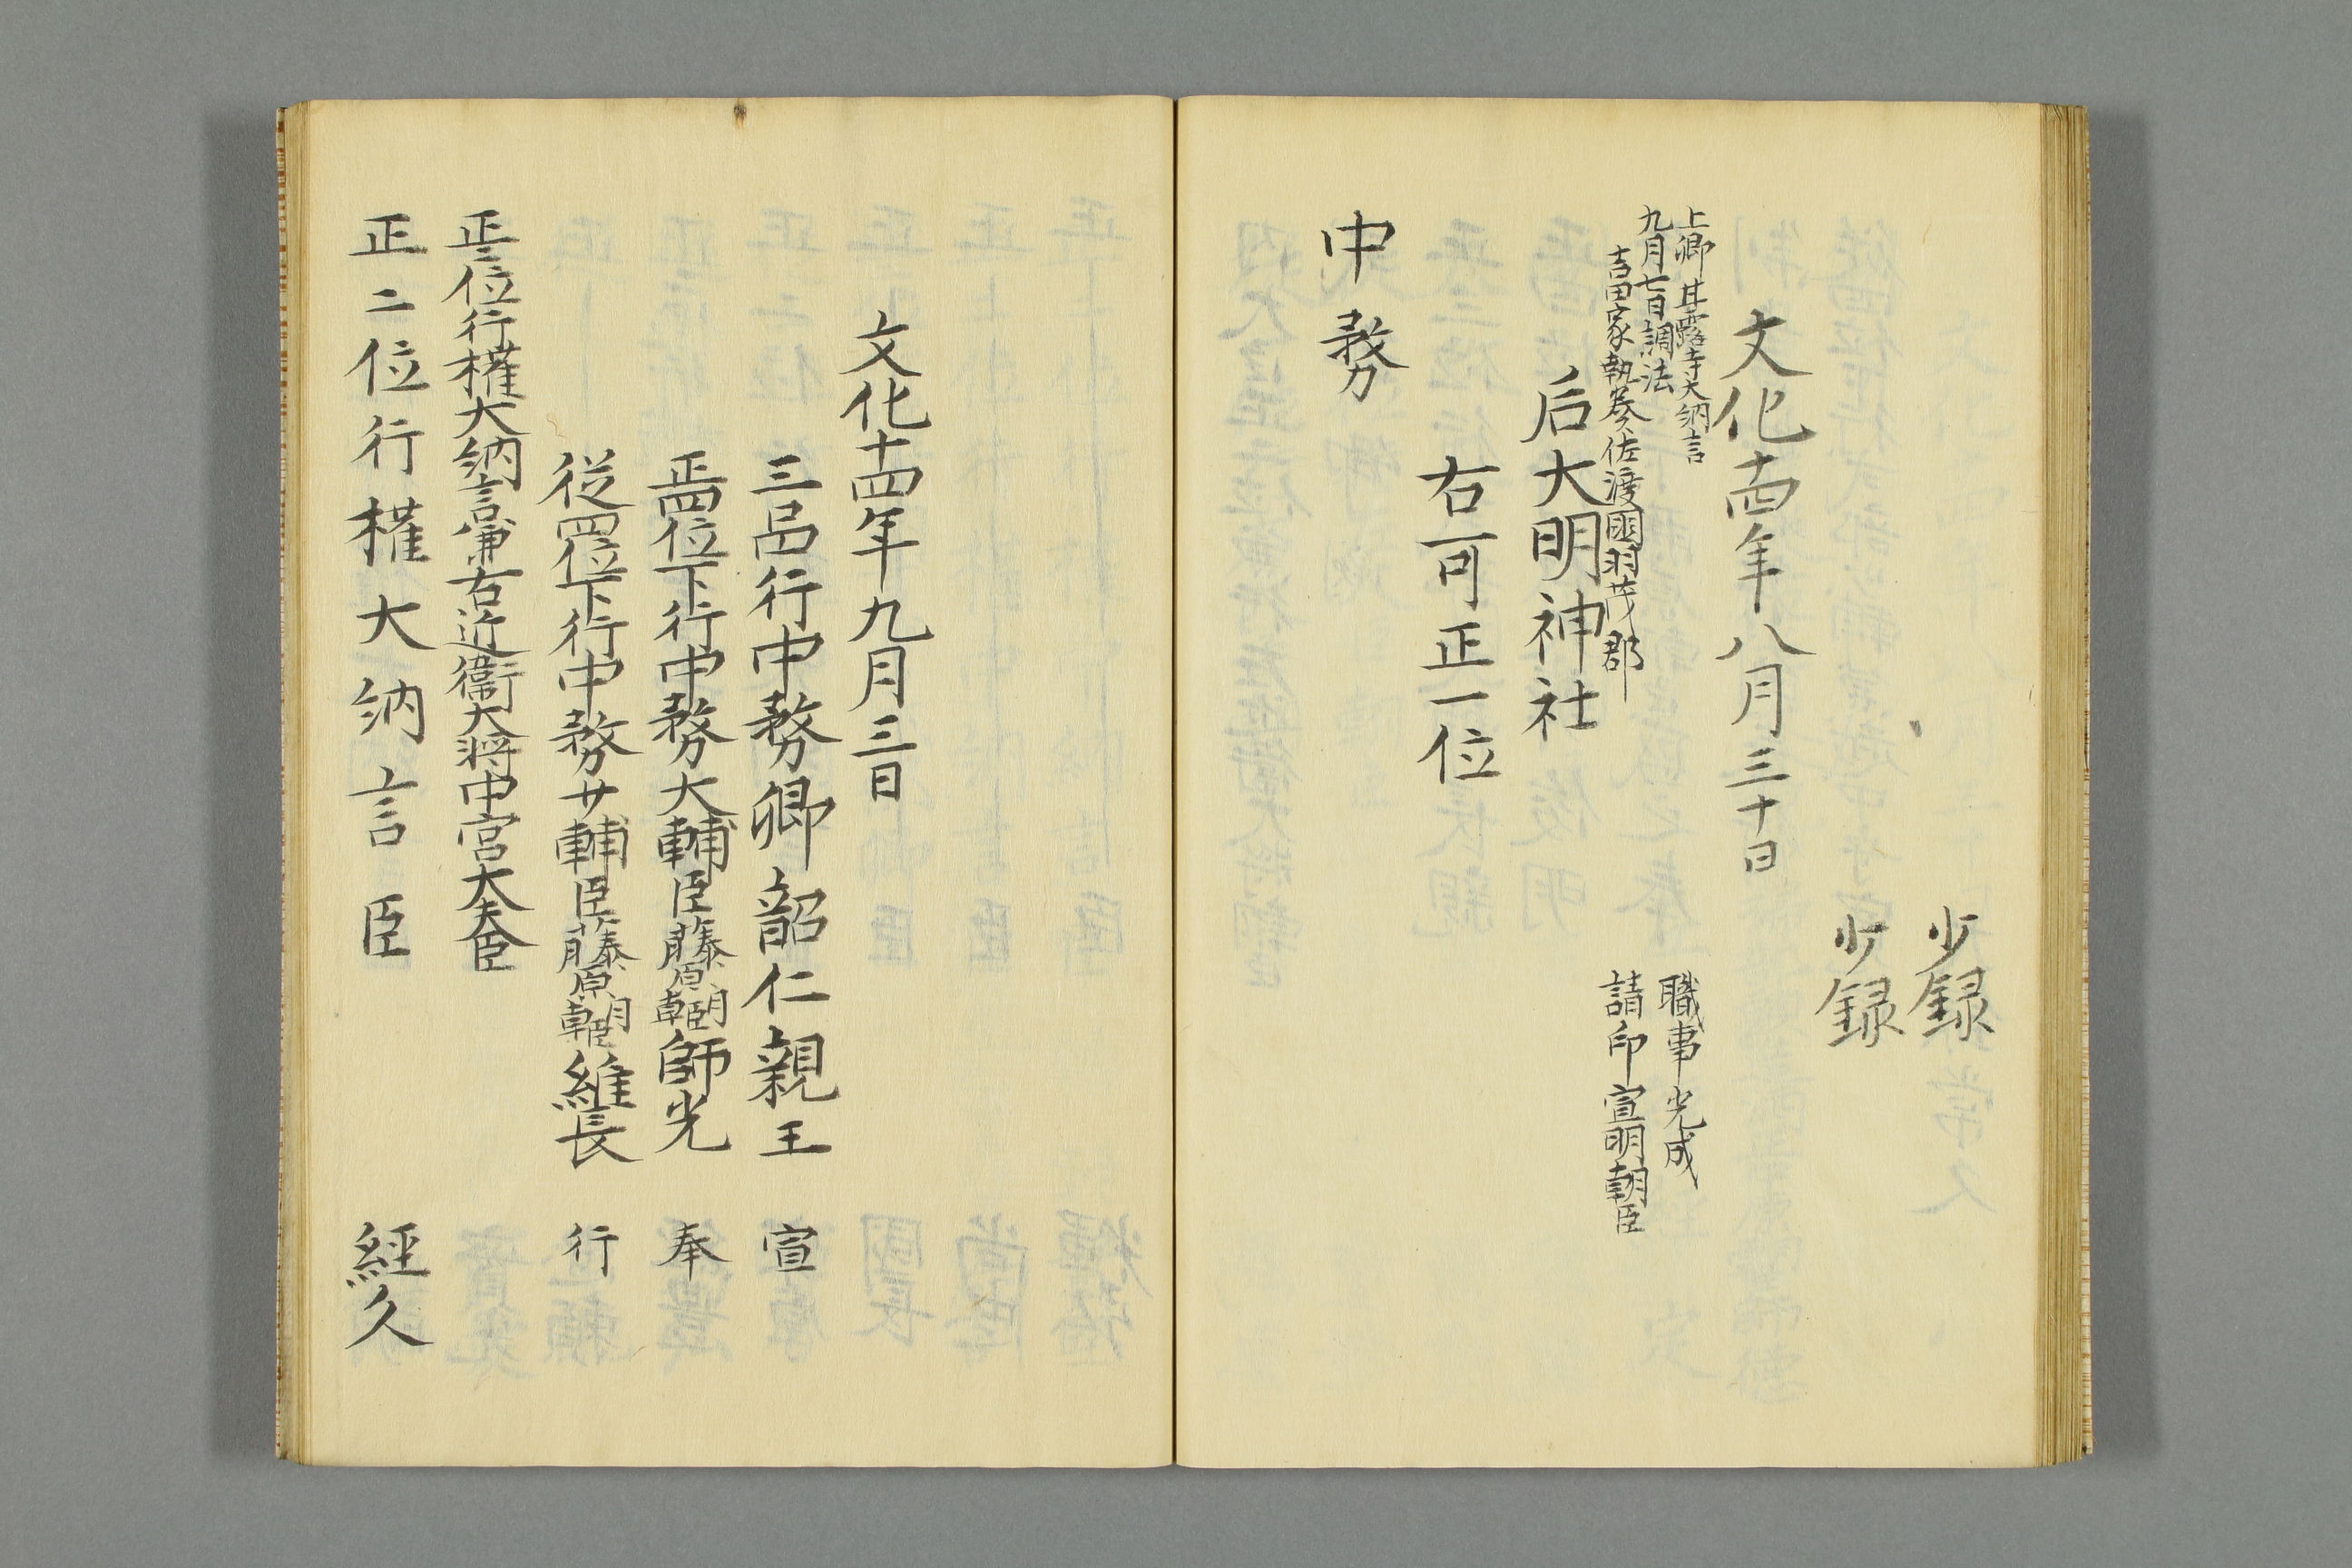 少録
少録
文化十四年八月三十日
上卿 甘露寺大納言
九月七日調法
吉田家執奏佐渡國羽茂郡
職事光成
請印宣明朝臣
后大明神社
右可正一位
中務
文化十四年九月三日
三品行中務卿韶仁親王 宣
正四位下行中務大輔臣藤原朝臣師光 奉
従四位下行中務少輔臣藤原朝臣維長 行
正二位行權大納言兼右近衛大将中宮大夫臣
正二位行權大納言臣 經久